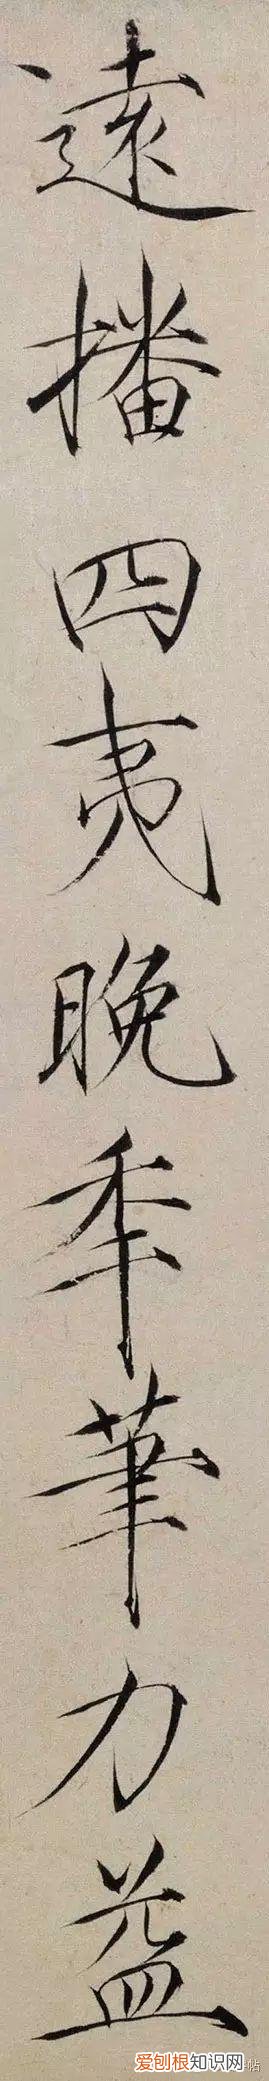 遠播四夷晚秊筆力益
爱刨根知识网
帖